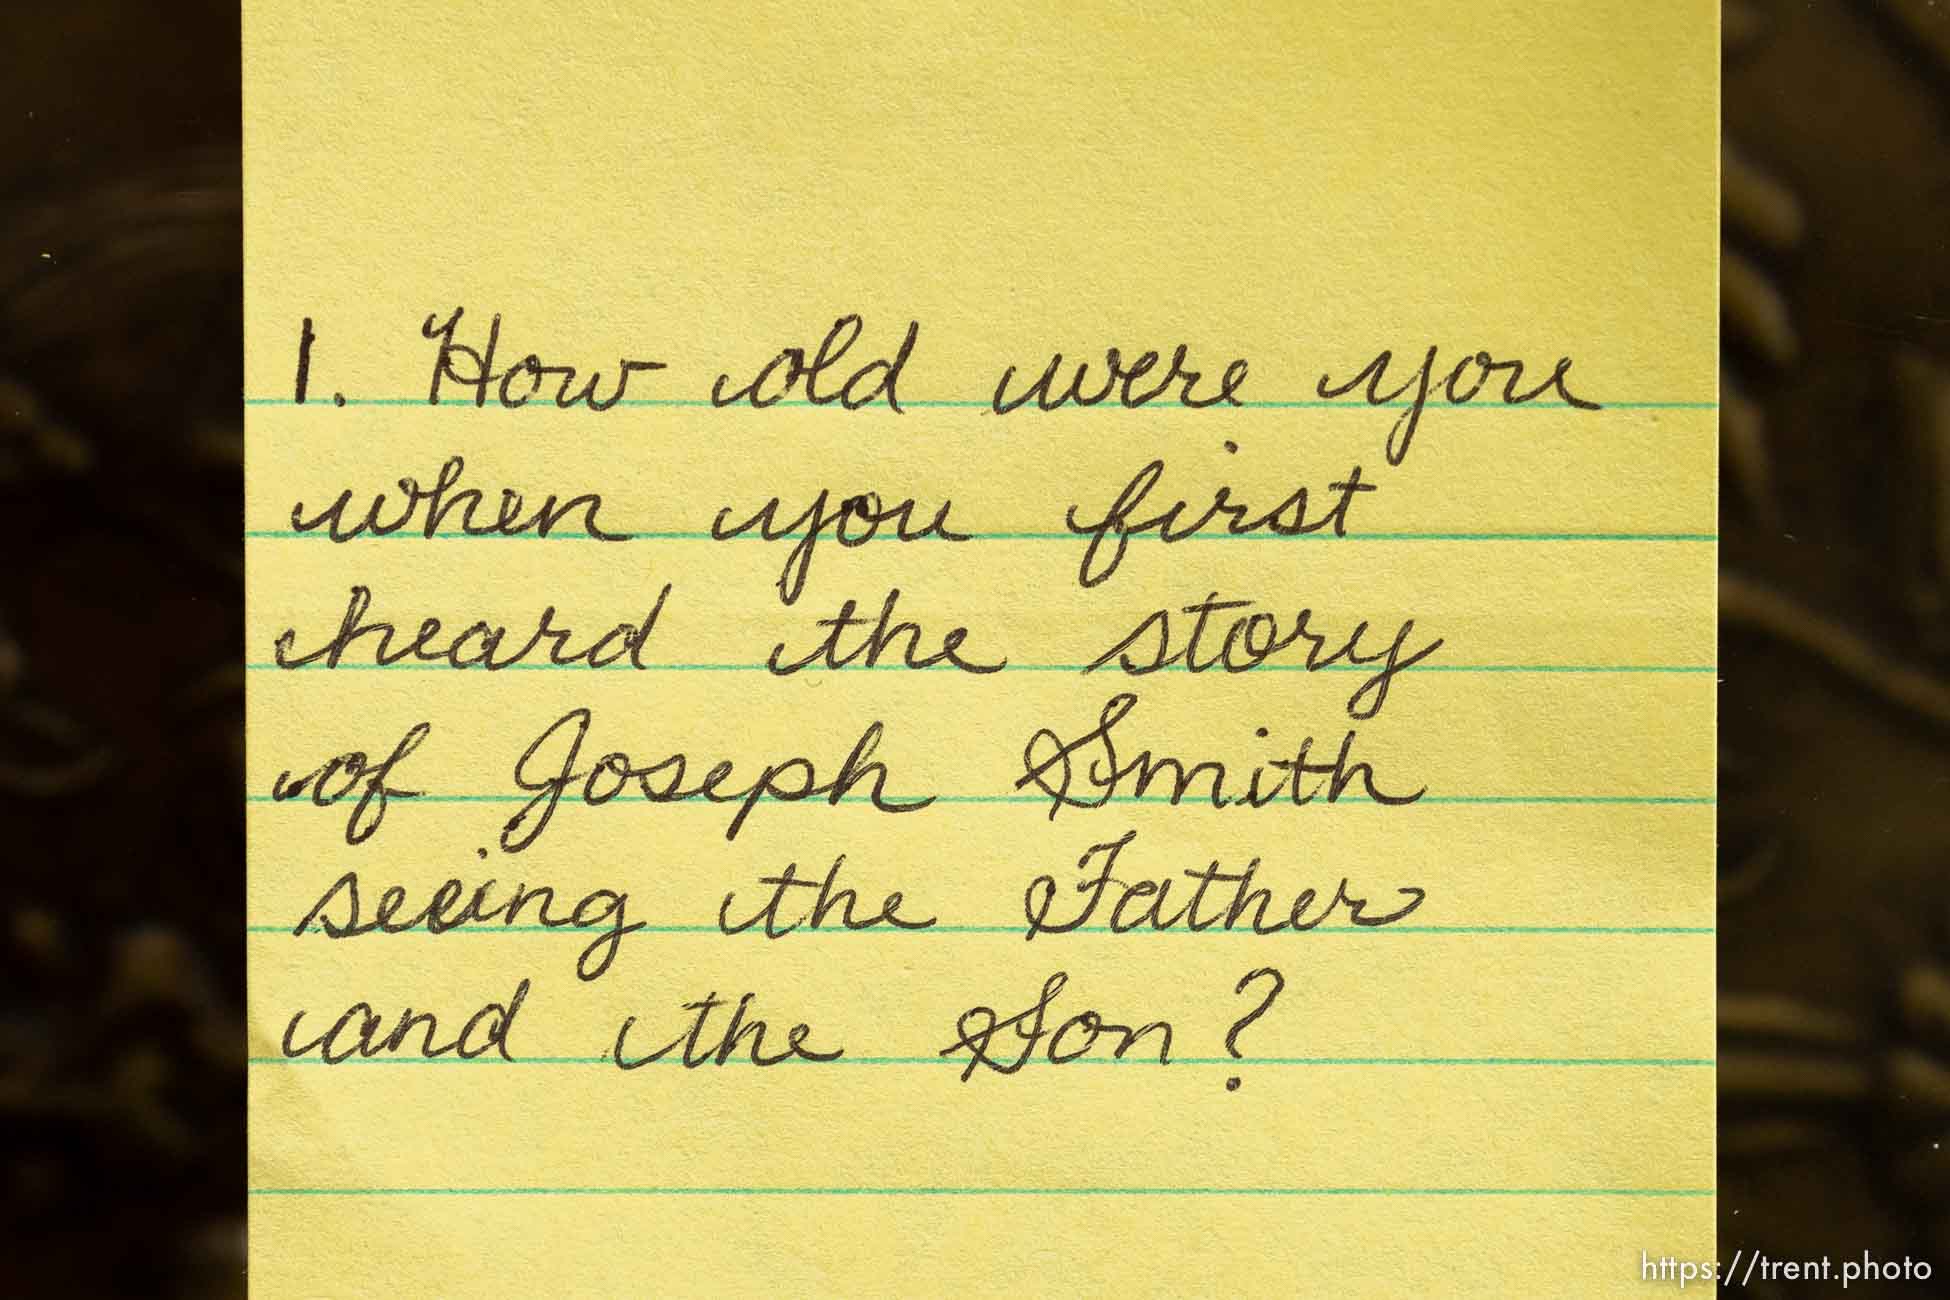 1. How old were you
when you first
heard the story
of Joseph Smith
seeing the Father
and the Son?
https://trent.photo